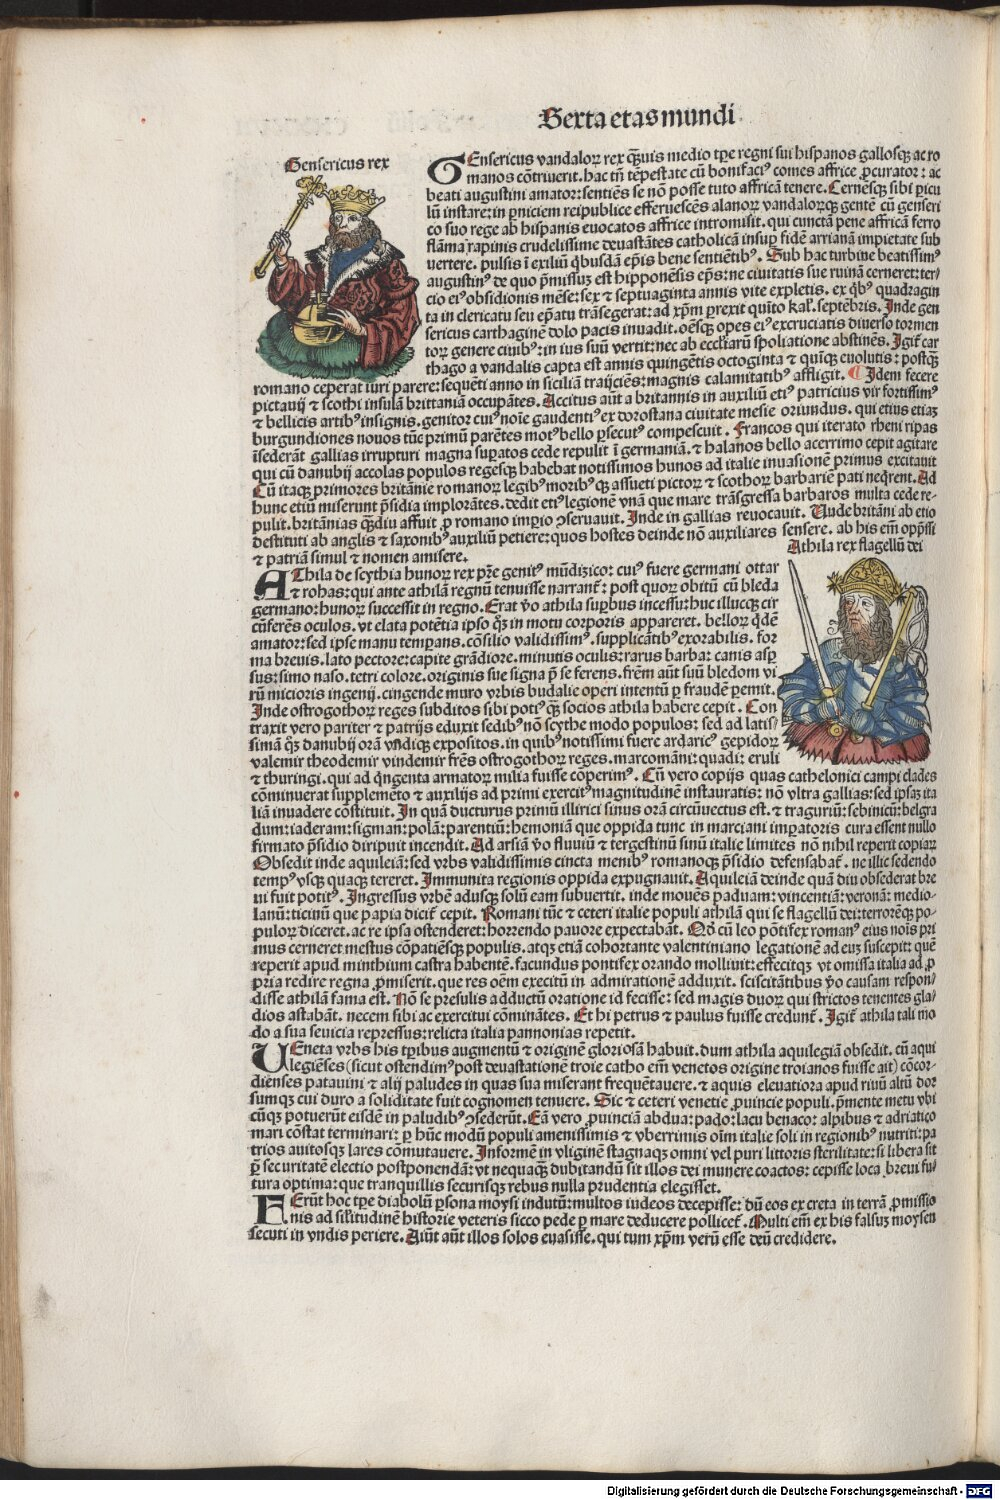 Sexta etas mundi
Gensericus rex
GEnsericus vandaloꝝ rex q̄uis medio tꝑe regni sui hispanos gallosqꝫ ac ro
manos cōtriuerit. hac tn̄ tēpestate cū bonifaciꝰ comes affrice ꝓcurator: ac
beati augustini amator: sentiēs se nō posse tuto affricā tenere. Cernēsqꝫ sibi ꝑicu
lū instare: in ꝑniciem reipublice efferuescēs alanoꝝ vandaloꝝqꝫ gentē cū genseri
co suo rege ab hispanis euocatos affrice intromisit. qui cunctā pene affricā ferro
flāma rapinis crudelissime deuastātes catholicā insuꝑ fidē arrianā impietate sub
vertere. pulsis ī exiliū qͥbusdā eꝑis bene sentiētibꝰ. Sub hac turbine beatissimꝰ
augustinꝰ de quo p̄missuꝫ est hipponēsis eꝑs: ne ciuitatis sue ruinā cerneret: ter⸗
cio eiꝰ obsidionis mēse: sex ⁊ septuaginta annis vite expletis. ex qͥbꝰ quadragin
ta in clericatu seu eꝑatu trāsegerat: ad xp̄m ꝑrexit quīto kal̕. septēbris. Inde gen
sericus carthaginē dolo pacis inuadit. oēsqꝫ opes eiꝰ excruciatis diuerso tormen
toꝝ genere ciuibꝰ: in ius suū vertit: nec ab eccl̕iarū spoliatione abstinēs. Igit̄ car
thago a vandalis capta est annis quingētis octoginta ⁊ quīqꝫ euolutis: postq̄ꝫ
romano ceperat iuri parere: sequēti anno in siciliā traijciēs: magnis calamitatibꝰ affligit. ¶ Idem fecere
pictauij ⁊ scothi insulā brittaniā occupātes. Accitus aūt a britannis in auxiliū etiꝰ patricius vir fortissimꝰ
⁊ bellicis artibꝰ insignis. genitor cuiꝰ noīe gaudentiꝰ ex dorostana ciuitate mesie oriundus. qui etius etiaꝫ
burgundiones nouos tūc primū parētes motꝰ bello ꝑsecutꝰ compescuit. Francos qui iterato rheni ripas
īsederāt gallias irrupturi magna suꝑatos cede repulit ī germaniā. ⁊ halanos bello acerrimo cepit agitare
qui cū danubij accolas populos regesqꝫ habebat notissimos hunos ad italie inuasionē primus excitauit
Cū itaqꝫ primores britānie romanoꝝ legibꝰ moribꝰqꝫ assueti pictoꝝ ⁊ scothoꝝ barbariē pati neqͥrent. Ad
hunc etiū miserunt p̄sidia implorātes. dedit etiꝰ legionē vnā que mare trāsgressa barbaros multa cede re⸗
pulit. britānias q̄ꝫdiu affuit ꝓ romano imꝑio ꝯseruauit. Inde in gallias reuocauit. Unde britāni ab etio
destituti ab anglis ⁊ saxonibꝰ auxiliū petiere: quos hostes deinde nō auxiliares sensere. ab his em̄ opp̄ssi
⁊ patriā simul ⁊ nomen amisere.
Athila rex flagellū dei
AThila de scythia hunoꝝ rex pr̄e genitꝰ mūdizico: cuiꝰ fuere germani ottar
⁊ rohas: qui ante athilā regnū tenuisse narrant̄: post quoꝝ obitū cū bleda
germano: hunoꝝ successit in regno. Erat v̄o athila suꝑbus incessu: huc illucqꝫ cir
cūferēs oculos. vt elata potētia ipso qͦꝫ in motu corporis appareret. belloꝝ qͥdē
amator: sed ipse manu temꝑans. cōsilio validissimꝰ. supplicātibꝰ exorabilis. for
ma breuis. lato pectore: capite grādiore. minutis oculis: rarus barba: canis asꝑ
sus: simo naso. tetri colore. originis sue signa p̄ se ferens. frēm aūt suū bledom vi
rū micioris ingenij. cingende muro vrbis budalie operi intentū ꝑ fraudē ꝑemit.
Inde ostrogothoꝝ reges subditos sibi potiꝰ q̄ꝫ socios athila habere cepit. Con
traxit vero pariter ⁊ patrijs eduxit sedibꝰ nō scythe modo populos: sed ad latis⸗
simā qͦꝫ danubij orā vndiqꝫ expositos. in quibꝰ notissimi fuere ardaricꝰ gepidoꝝ
valemir theodemir vindemir fr̄es ostrogothoꝝ reges. marcomāni: quadi: eruli
⁊ thuringi. qui ad qͥngenta armatoꝝ milia fuisse cōperinꝰ. Cū vero copijs quas cathelonici campi clades
cōminuerat supplemēto ⁊ auxilijs ad primi exercitꝰ magnitudinē instauratis: nō vltra gallias: sed ipsaꝫ ita
liā inuadere cōstituit. In quā ducturus primū illirici sinus orā circūuectus est. ⁊ traguriū: sebinicū: belgra
dum: iaderam: sigman: polā: parentiū: hemoniā que oppida tunc in marciani imꝑatoris cura essent nullo
firmato p̄sidio diripuit incendit. Ad arsiā v̄o fluuiū ⁊ tergestinū sinū italie limites nō nihil reperit copiaꝝ
Obsedit inde aquileiā: sed vrbs validissimis cincta menibꝰ romanoqꝫ p̄sidio defensabat̄. ne illic sedendo
tempꝰ vsqꝫ quaqꝫ tereret. Immunita regionis oppida expugnauit. Aquileiā deinde quā diu obsederat bre
ui fuit potitꝰ. Ingressus vrbē adusqꝫ solū eam subuertit. inde mouēs paduam: vincentiā: veronā: medio⸗
lanū: ticinū que papia dicit̄ cepit. Romani tūc ⁊ ceteri italie populi athilā qui se flagellū dei: terrorēqꝫ po⸗
puloꝝ diceret. ac re ipsa ostenderet: horrendo pauore expectabāt. Qd̄ cū leo pōtifex romanꝰ eius noīs pri
mus cerneret mestus cōpatiēsqꝫ populis. atqꝫ etiā cohortante valentiniano legationē ad euꝫ suscepit: quē
reperit apud minthium castra habentē. facundus pontifex orando molliuit: effecitqꝫ vt omissa italia ad ꝓ
pria redire regna ꝓmiserit. que res oēm exercitū in admirationē adduxit. sciscitātibus v̄o causam respon⸗
disse athilā fama est. Nō se presulis adductū oratione id fecisse: sed magis duoꝝ qui strictos tenentes gla⸗
dios astabāt. necem sibi ac exercitui cōminātes. Et hi petrus ⁊ paulus fuisse credunt̄. Igit̄ athila tali mo
do a sua seuicia repressus: relicta italia pannonias repetit.
UEneta vrbs his tꝑibus augmentū ⁊ originē gloriosā habuit. dum athila aquilegiā obsedit. cū aqui
legiēses (sicut ostendimꝰ post deuastationē troie catho em̄ venetos origine troianos fuisse ait) cōcor⸗
dienses patauini ⁊ alij paludes in quas sua miserant frequētauere. ⁊ aquis eleuatiora apud riuū altū dor
sumqꝫ cui duro a soliditate fuit cognomen tenuere. Sic ⁊ ceteri venetie ꝓuincie populi. p̄mente metu vbi
cūqꝫ potuerūt eisdē in paludibꝰ ꝯsederūt. Eā vero ꝓuinciā abdua: pado: lacu benaco: alpibus ⁊ adriatico
mari cōstat terminari: ꝑ hūc modū populi amenissimis ⁊ vberrimis oīm italie soli in regionibꝰ nutriti: pa
trios auitosqꝫ lares cōmutauere. Informē in vliginē stagnaqꝫ omni vel puri littoris sterilitate: si libera sit
ꝑ securitatē electio postponendā: vt nequaq̄ꝫ dubitandū sit illos dei munere coactos: cepisse loca breui fu⸗
tura optima: que tranquillis securisqꝫ rebus nulla prudentia elegisset.
FErūt hoc tꝑe diabolū ꝑsona moysi indutū: multos iudeos decepisse: dū eos ex creta in terrā ꝓmissio
nis ad sil̕itudinē historie veteris sicco pede ꝑ mare deducere pollicet̄. Multi em̄ ex his falsuꝫ moysen
secuti in vndis periere. Aiūt aūt illos solos euasisse. qui tum xp̄m verū esse deū credidere.
Digitalisierung gefördert durch die Deutsche Forschungsgemeinschaft - DFG